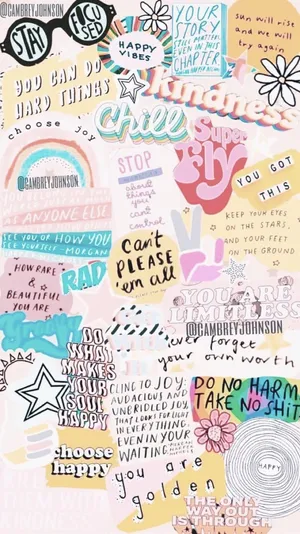 @CAMBREYJOHNSON
STAY
FOCUSED
HAPPY
VIBES
YOUR
STORY
STILL MATTERS
EVEN IN THIS
CHAPTER
sun will rise
and we will
try again
YOU CAN DO
HARD THINGS
kindness
choose joy
Chill
Super
Fly
STOP
about
things
you
can't
control
YOU GOT
THIS
@CAMBREYJOHNSON
AS ANYONE ELSE
KEEP YOUR EYES
ON THE STARS,
AND YOUR FEET
ON THE GROUND
Can't
PLEASE
'em all
HOW RARE
&
BEAUTIFUL
YOU ARE
RAD
YOU ARE
LIMITLESS
@CAMBREYJOHNSON
ever forget
your own worth
DO
WHAT
MAKES
YOUR
SOUL
HAPPY
CLING TO JOY;
AUDACIOUS AND
UNBRIDLED JOY,
THAT LOOKS FOR LIGHT
IN EVERYTHING
EVEN IN YOUR
WAITING.
DO NO HARM
TAKE NO SHIT
choose
happy
HAPPY
you are
golden
THE ONLY
WAY OUT
IS THROUGH